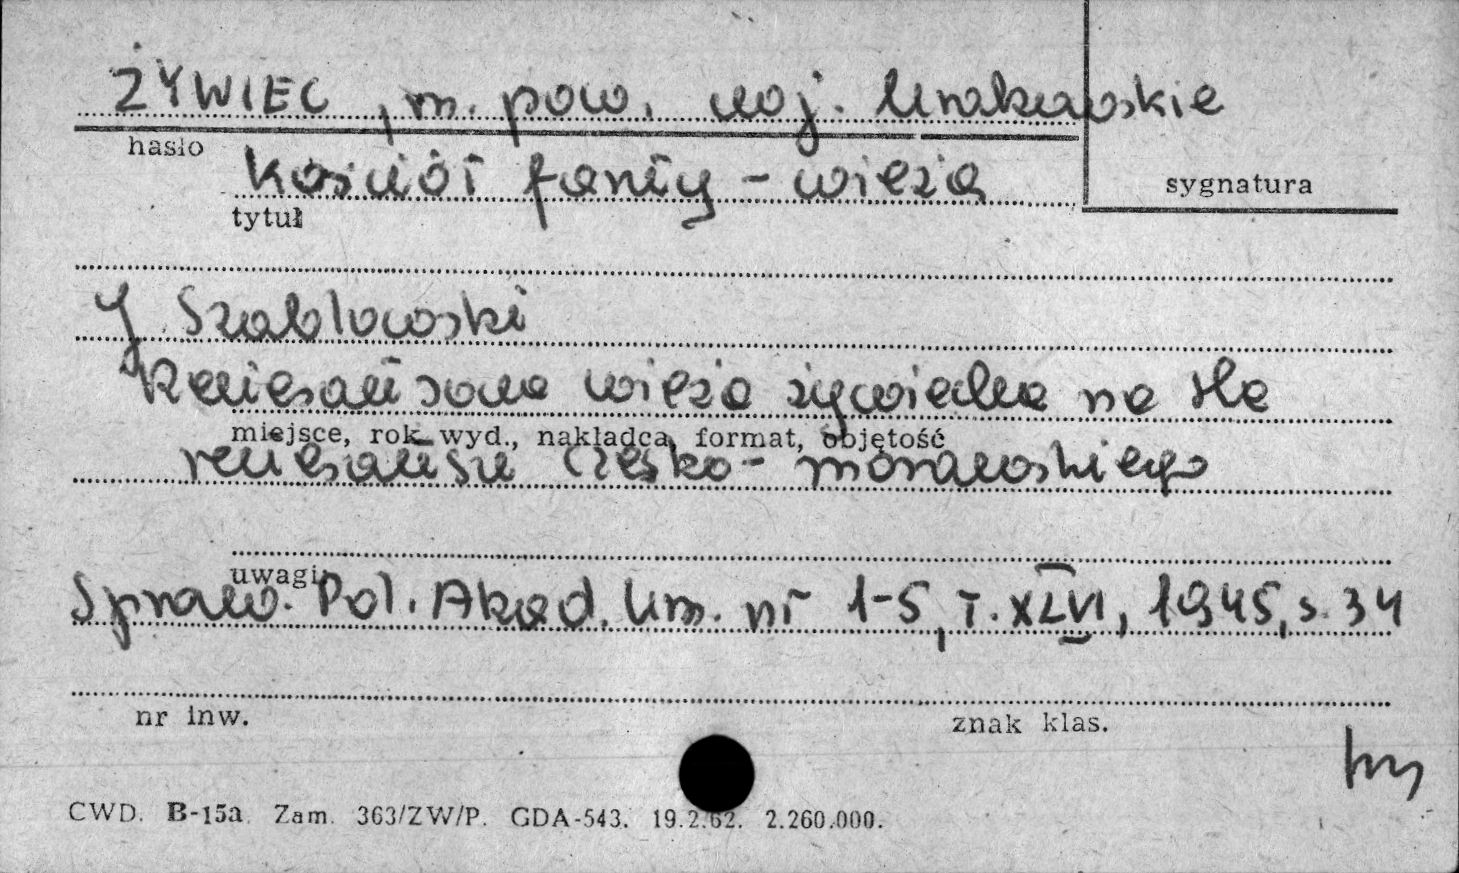 ŻYWIEC, m. pow. woj. krakowskie
hasło
Kościół farny - wieża
sygnatura
tytuł
J. Szablowski
Renesansowa wieża żywiecka na tle
miejsce, rok wyd., nakładca, format, objętość
renesansu czesko-morawskiego
uwagi
Spraw. Pol. Akad. Um. nr 1-5, T. XLVI, 1945, s. 34
nr inw.
znak klas.
CWD. B-15a Zam. 363/ZW/P. GDA-543. 19.2.62. 2.260.000.